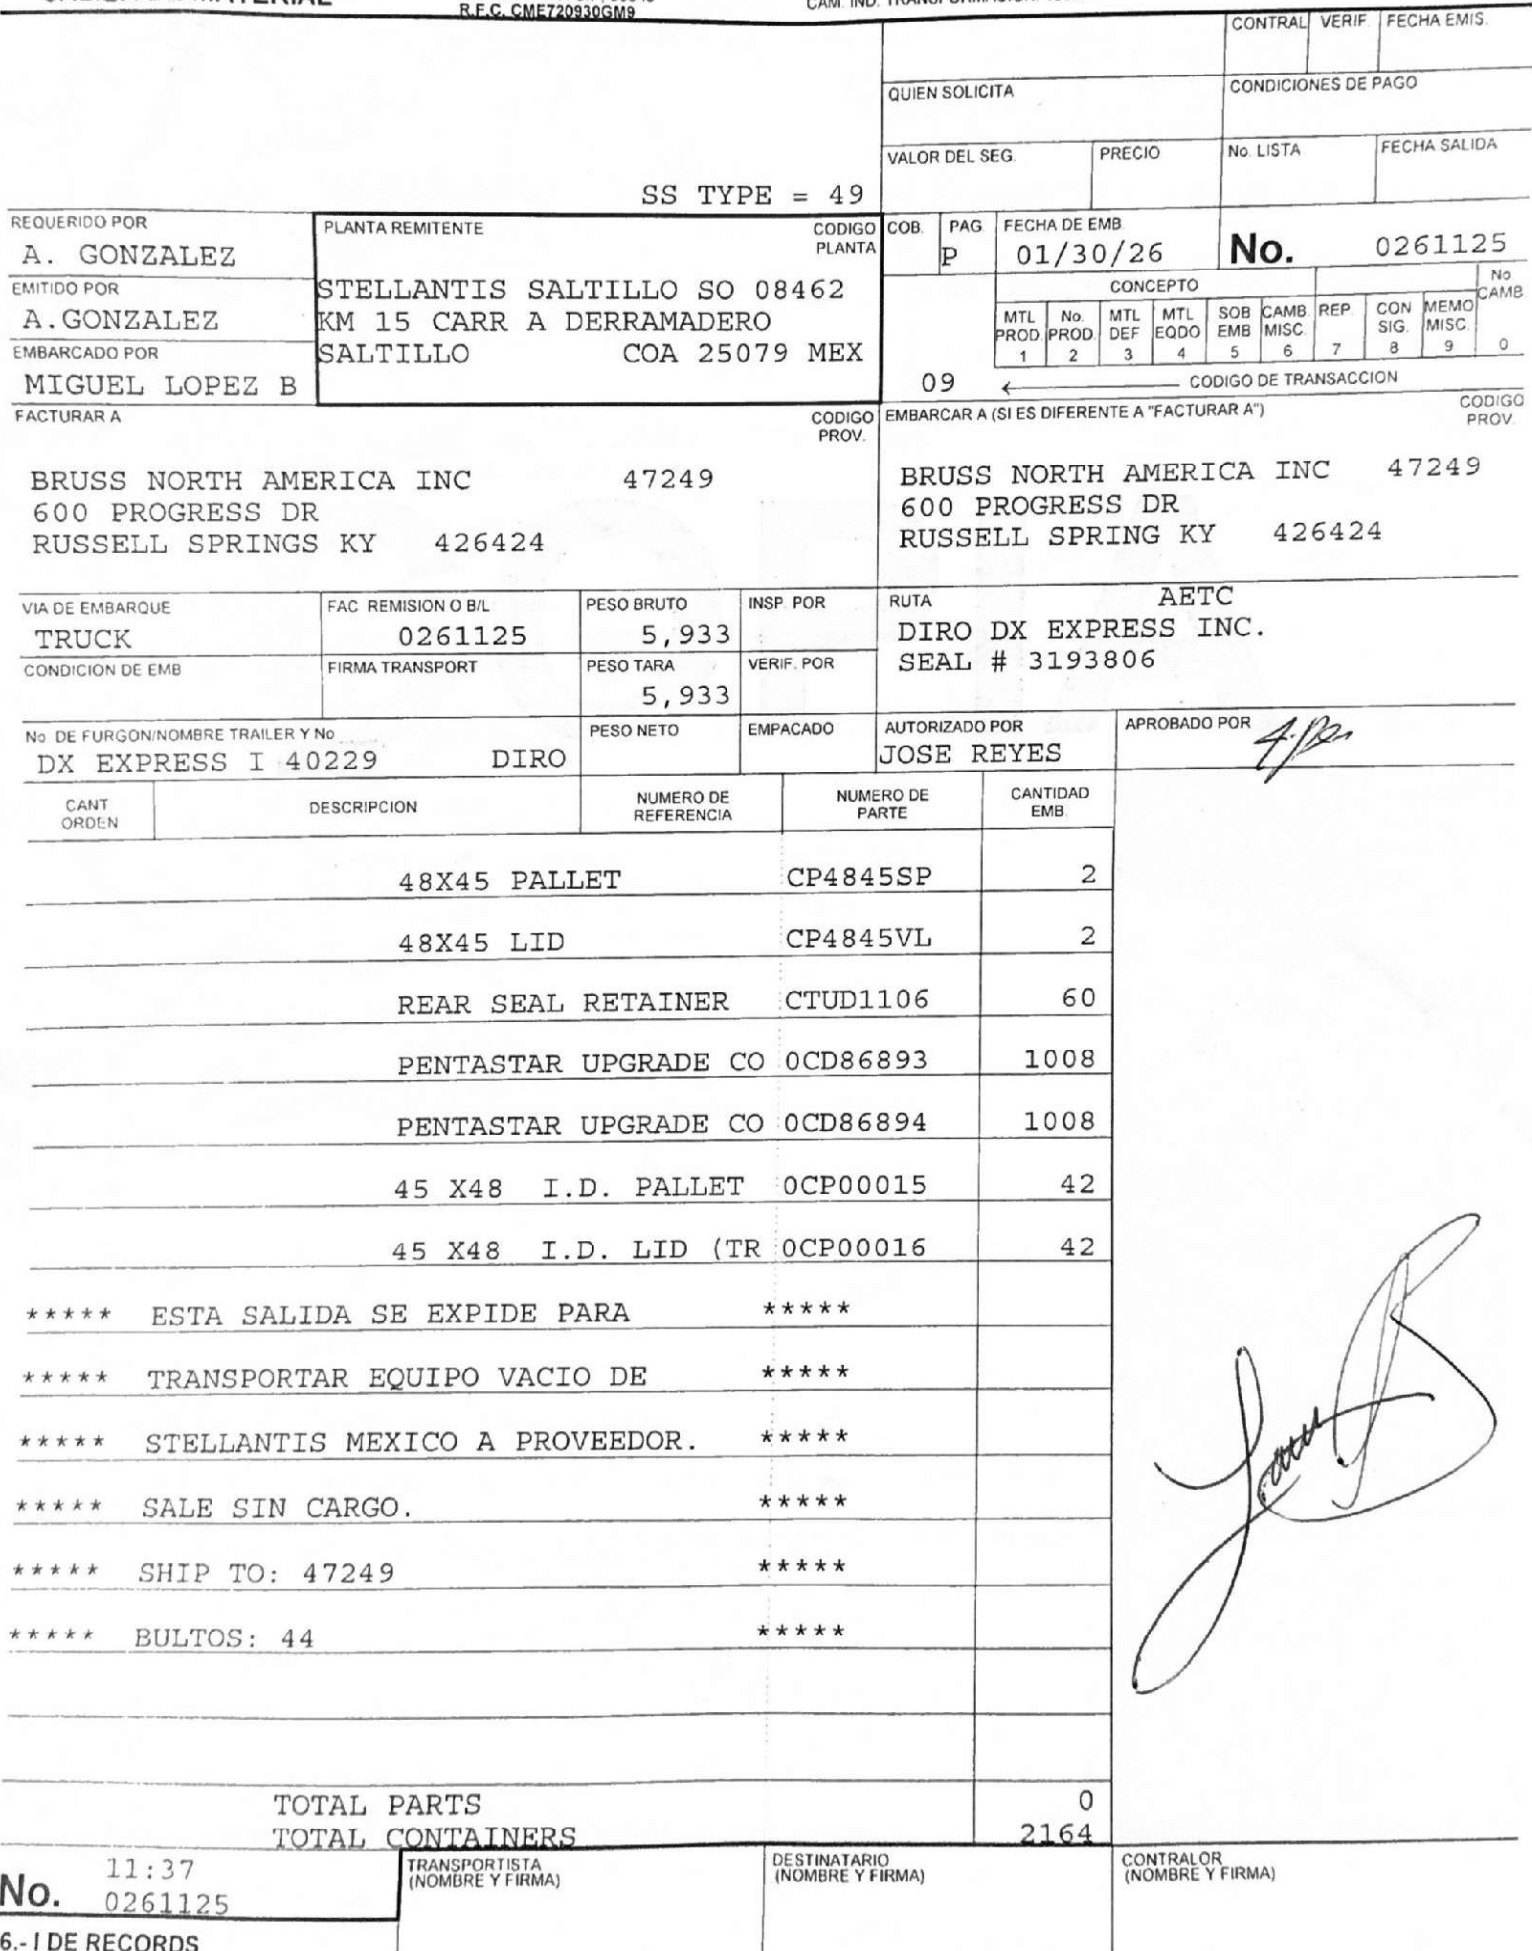 R.F.C. CME720930GM9
CONTRAL VERIF. FECHA EMIS.
QUIEN SOLICITA CONDICIONES DE PAGO
VALOR DEL SEG. PRECIO No. LISTA FECHA SALIDA
SS TYPE = 49
REQUERIDO POR
A. GONZALEZ
EMITIDO POR
A.GONZALEZ
EMBARCADO POR
MIGUEL LOPEZ B
PLANTA REMITENTE CODIGO PLANTA
STELLANTIS SALTILLO SO 08462
KM 15 CARR A DERRAMADERO
SALTILLO COA 25079 MEX
COB. PAG. FECHA DE EMB. No. 0261125
P 01/30/26
CONCEPTO No. CAMB
MTL PROD. 1 No. PROD. 2 MTL DEF 3 MTL EQDO 4 SOB EMB 5 CAMB. MISC. 6 REP. 7 CON SIG. 8 MEMO MISC. 9 0
09 CODIGO DE TRANSACCION
FACTURAR A CODIGO PROV.
BRUSS NORTH AMERICA INC 47249
600 PROGRESS DR
RUSSELL SPRINGS KY 426424
EMBARCAR A (SI ES DIFERENTE A "FACTURAR A") CODIGO PROV.
BRUSS NORTH AMERICA INC 47249
600 PROGRESS DR
RUSSELL SPRING KY 426424
VIA DE EMBARQUE FAC REMISION O B/L PESO BRUTO INSP. POR RUTA AETC
TRUCK 0261125 5,933 DIRO DX EXPRESS INC.
CONDICION DE EMB FIRMA TRANSPORT PESO TARA VERIF. POR SEAL # 3193806
5,933
No. DE FURGON/NOMBRE TRAILER Y No. PESO NETO EMPACADO AUTORIZADO POR APROBADO POR
DX EXPRESS I 40229 DIRO JOSE REYES
CANT ORDEN DESCRIPCION NUMERO DE REFERENCIA NUMERO DE PARTE CANTIDAD EMB.
48X45 PALLET CP4845SP 2
48X45 LID CP4845VL 2
REAR SEAL RETAINER CTUD1106 60
PENTASTAR UPGRADE CO 0CD86893 1008
PENTASTAR UPGRADE CO 0CD86894 1008
45 X48 I.D. PALLET 0CP00015 42
45 X48 I.D. LID (TR 0CP00016 42
***** ESTA SALIDA SE EXPIDE PARA *****
***** TRANSPORTAR EQUIPO VACIO DE *****
***** STELLANTIS MEXICO A PROVEEDOR. *****
***** SALE SIN CARGO. *****
***** SHIP TO: 47249 *****
***** BULTOS: 44 *****
TOTAL PARTS 0
TOTAL CONTAINERS 2164
11:37
No. 0261125
TRANSPORTISTA (NOMBRE Y FIRMA) DESTINATARIO (NOMBRE Y FIRMA) CONTRALOR (NOMBRE Y FIRMA)
6.- I DE RECORDS